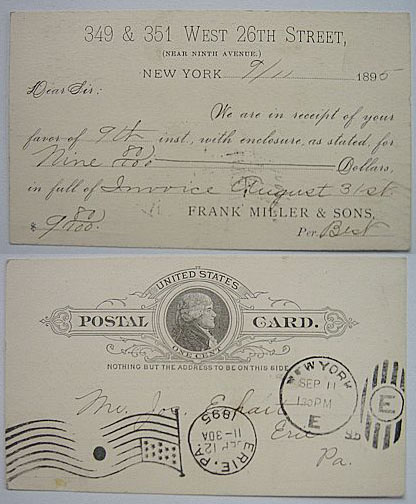 349 & 351 West 26th Street,
(NEAR NINTH AVENUE.)
NEW YORK 9/11 1895
Dear Sir:
We are in receipt of your
favor of 9th inst., with enclosure, as stated, for
Nine 80/100 Dollars,
in full of Invoice August 31st
FRANK MILLER & SONS,
$ 9 80/100. Per Best
UNITED STATES
POSTAL CARD.
ONE CENT
NOTHING BUT THE ADDRESS TO BE ON THIS SIDE
NEW YORK
SEP 11
PM
E
95
E
Mr. Jos.
Erie
Pa.
ERIE, PA
SEP 12
11-30A
1895